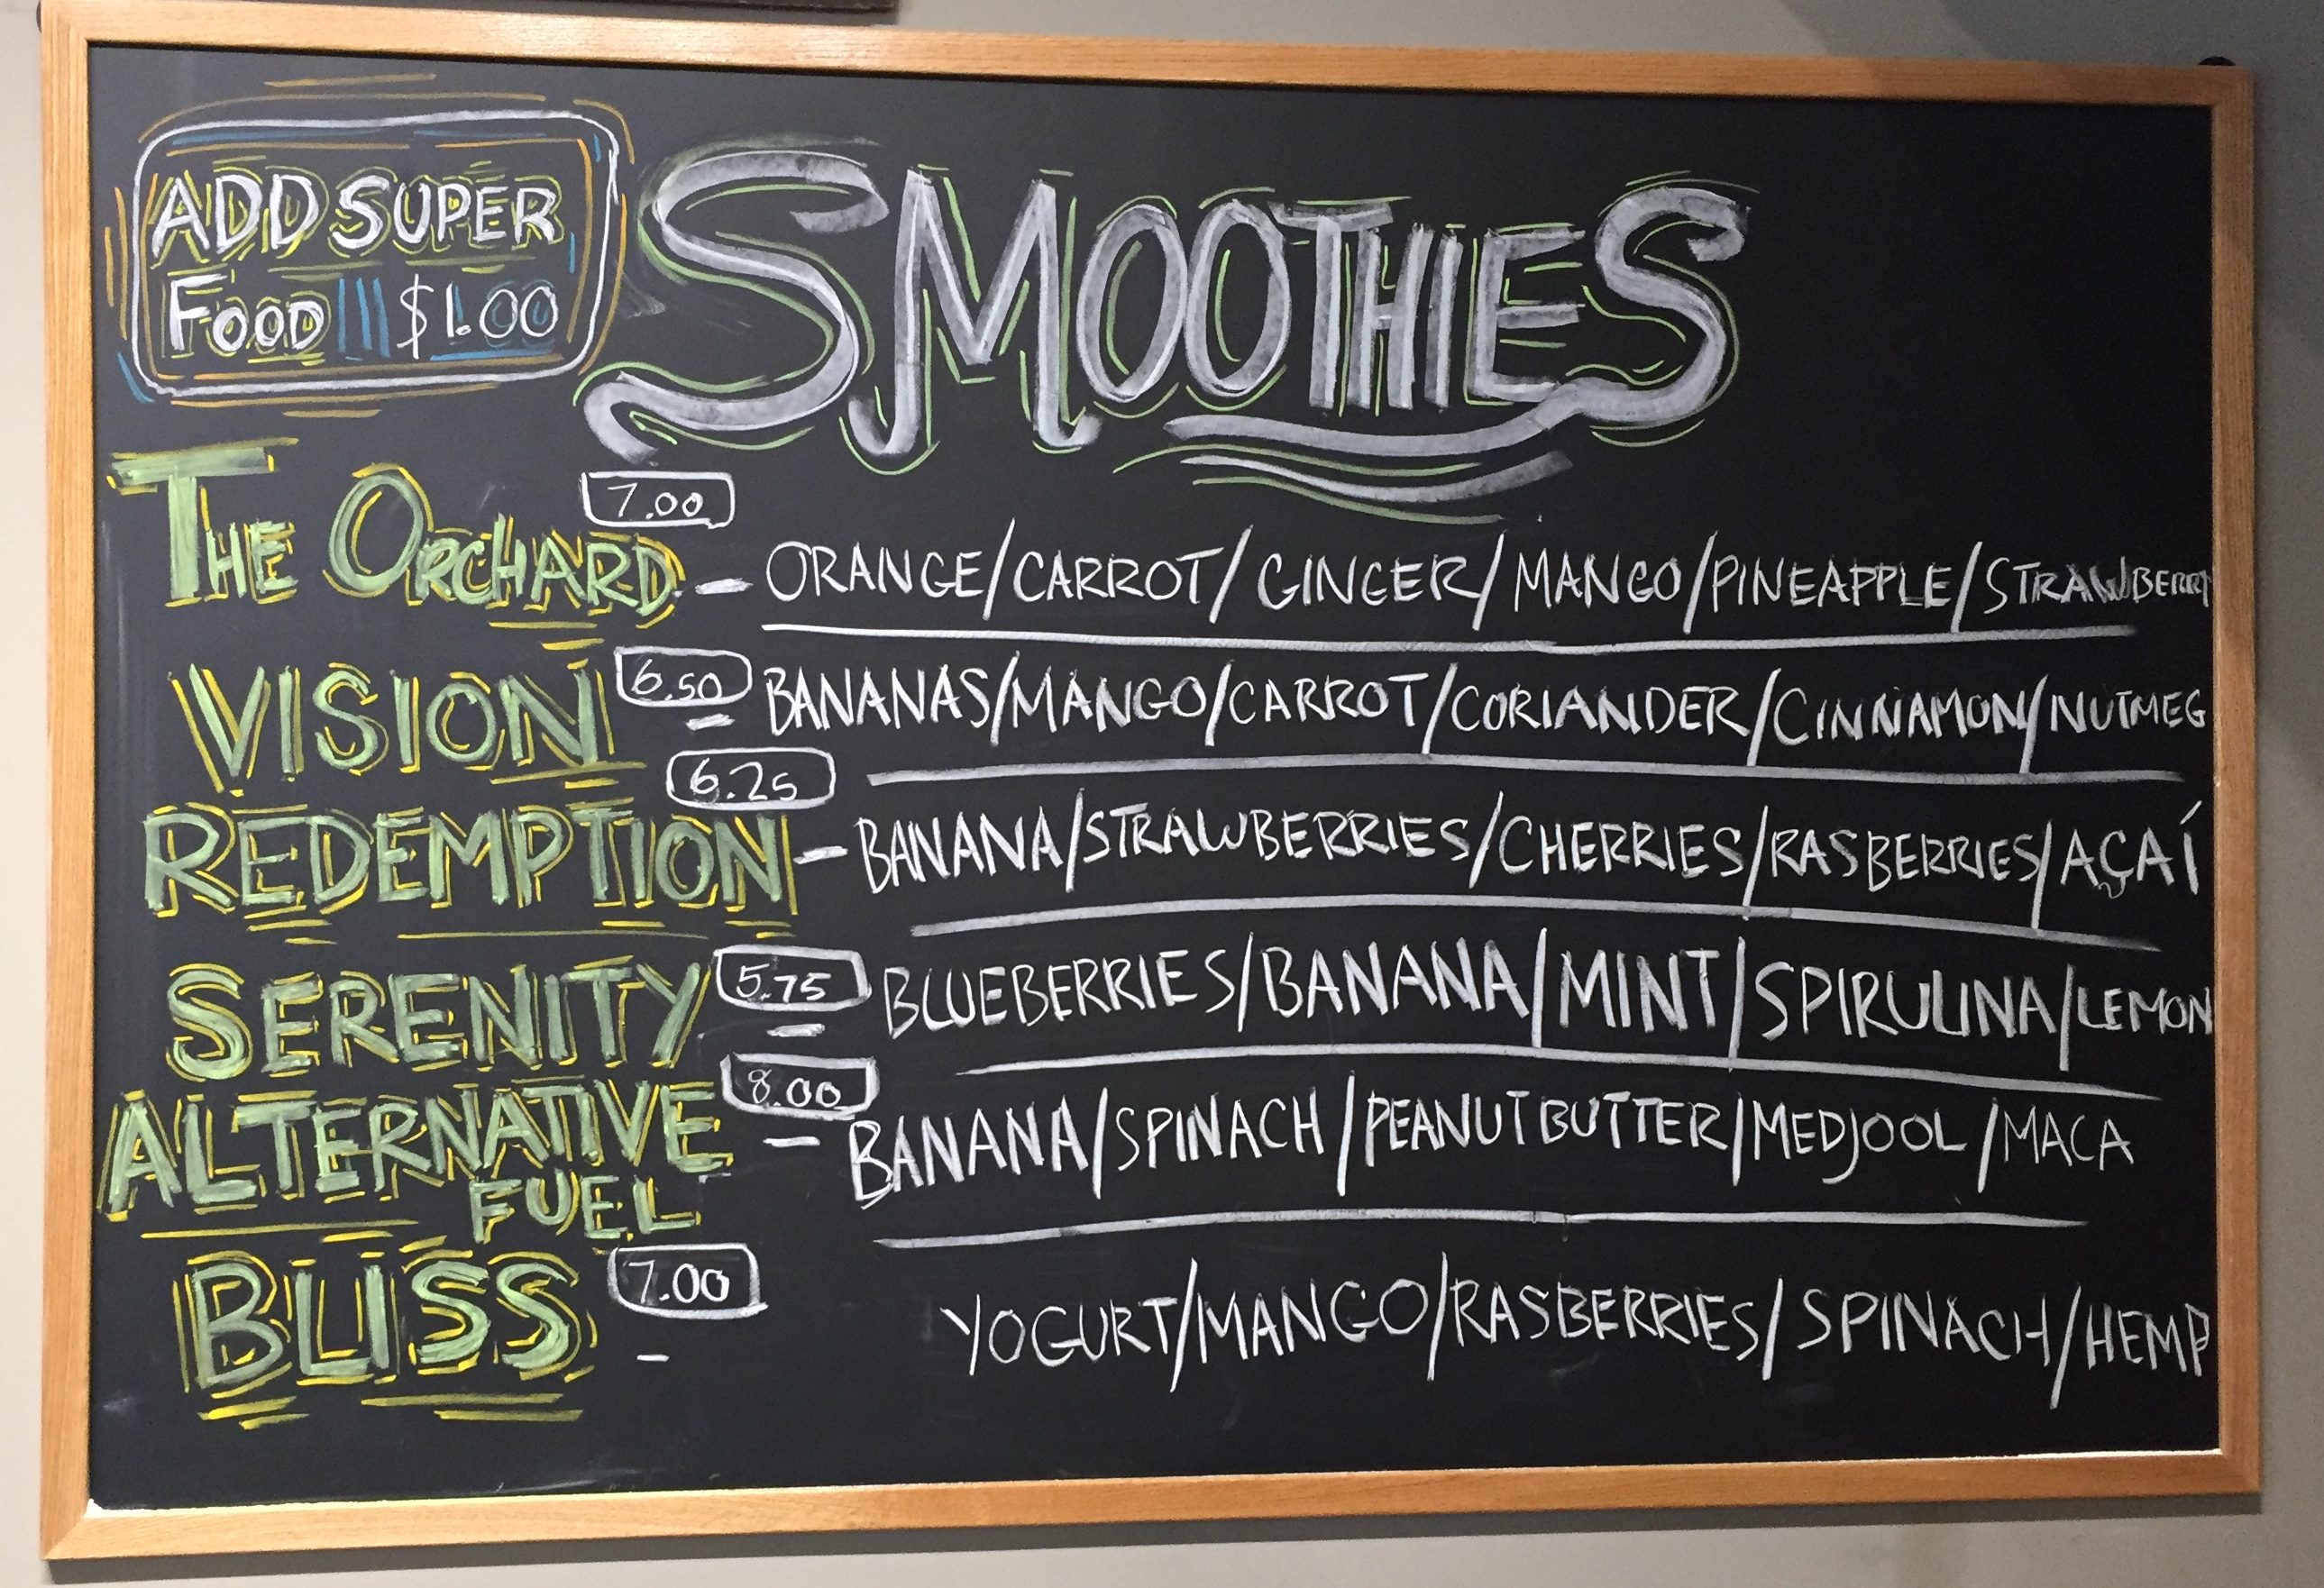 ADD SUPER
FOOD $1.00
SMOOTHIES
THE ORCHARD 7.00 - ORANGE/CARROT/GINGER/MANGO/PINEAPPLE/STRAWBERRY
VISION 6.50 - BANANAS/MANGO/CARROT/CORIANDER/CINNAMON/NUTMEG
REDEMPTION 6.25 - BANANA/STRAWBERRIES/CHERRIES/RASBERRIES/AÇAÍ
SERENITY 5.75 - BLUEBERRIES/BANANA/MINT/SPIRULINA/LEMON
ALTERNATIVE 8.00 - BANANA/SPINACH/PEANUT BUTTER/MEDJOOL/MACA
FUEL
BLISS 7.00 - YOGURT/MANGO/RASBERRIES/SPINACH/HEMP